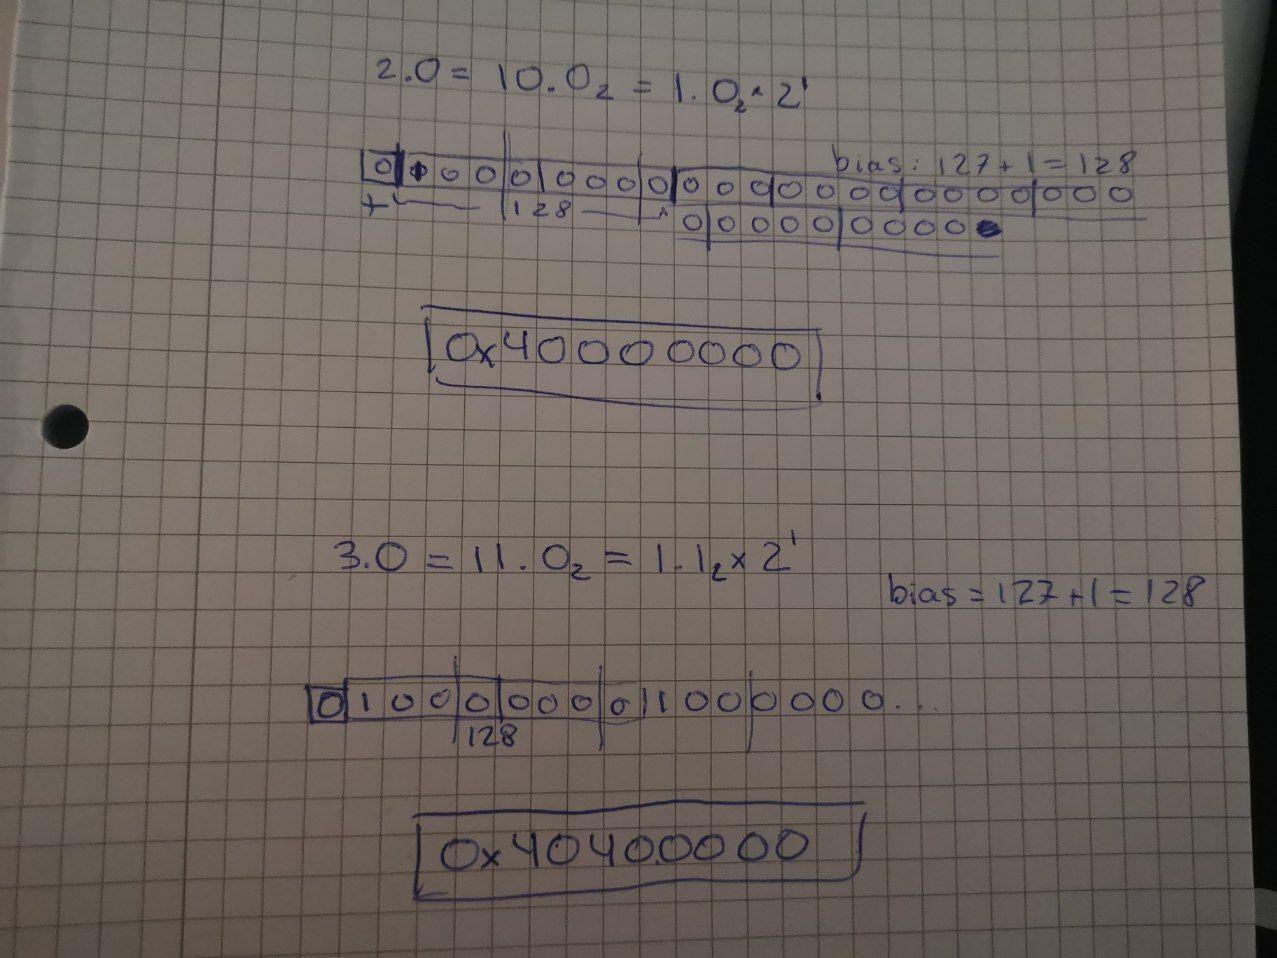 2.0 = 10.0₂ = 1.0₂ × 2¹
bias: 127 + 1 = 128
0 0 0 0 0 0 0 0 0 0 0 0 0 0 0 0 0 0 0 0 0 0
+ 128
0 0 0 0 0 0 0 0 0
0x40000000
3.0 = 11.0₂ = 1.1₂ × 2¹
bias = 127 + 1 = 128
0 1 0 0 0 0 0 0 0 1 1 0 0 0 0 0 0 ...
128
0x40400000